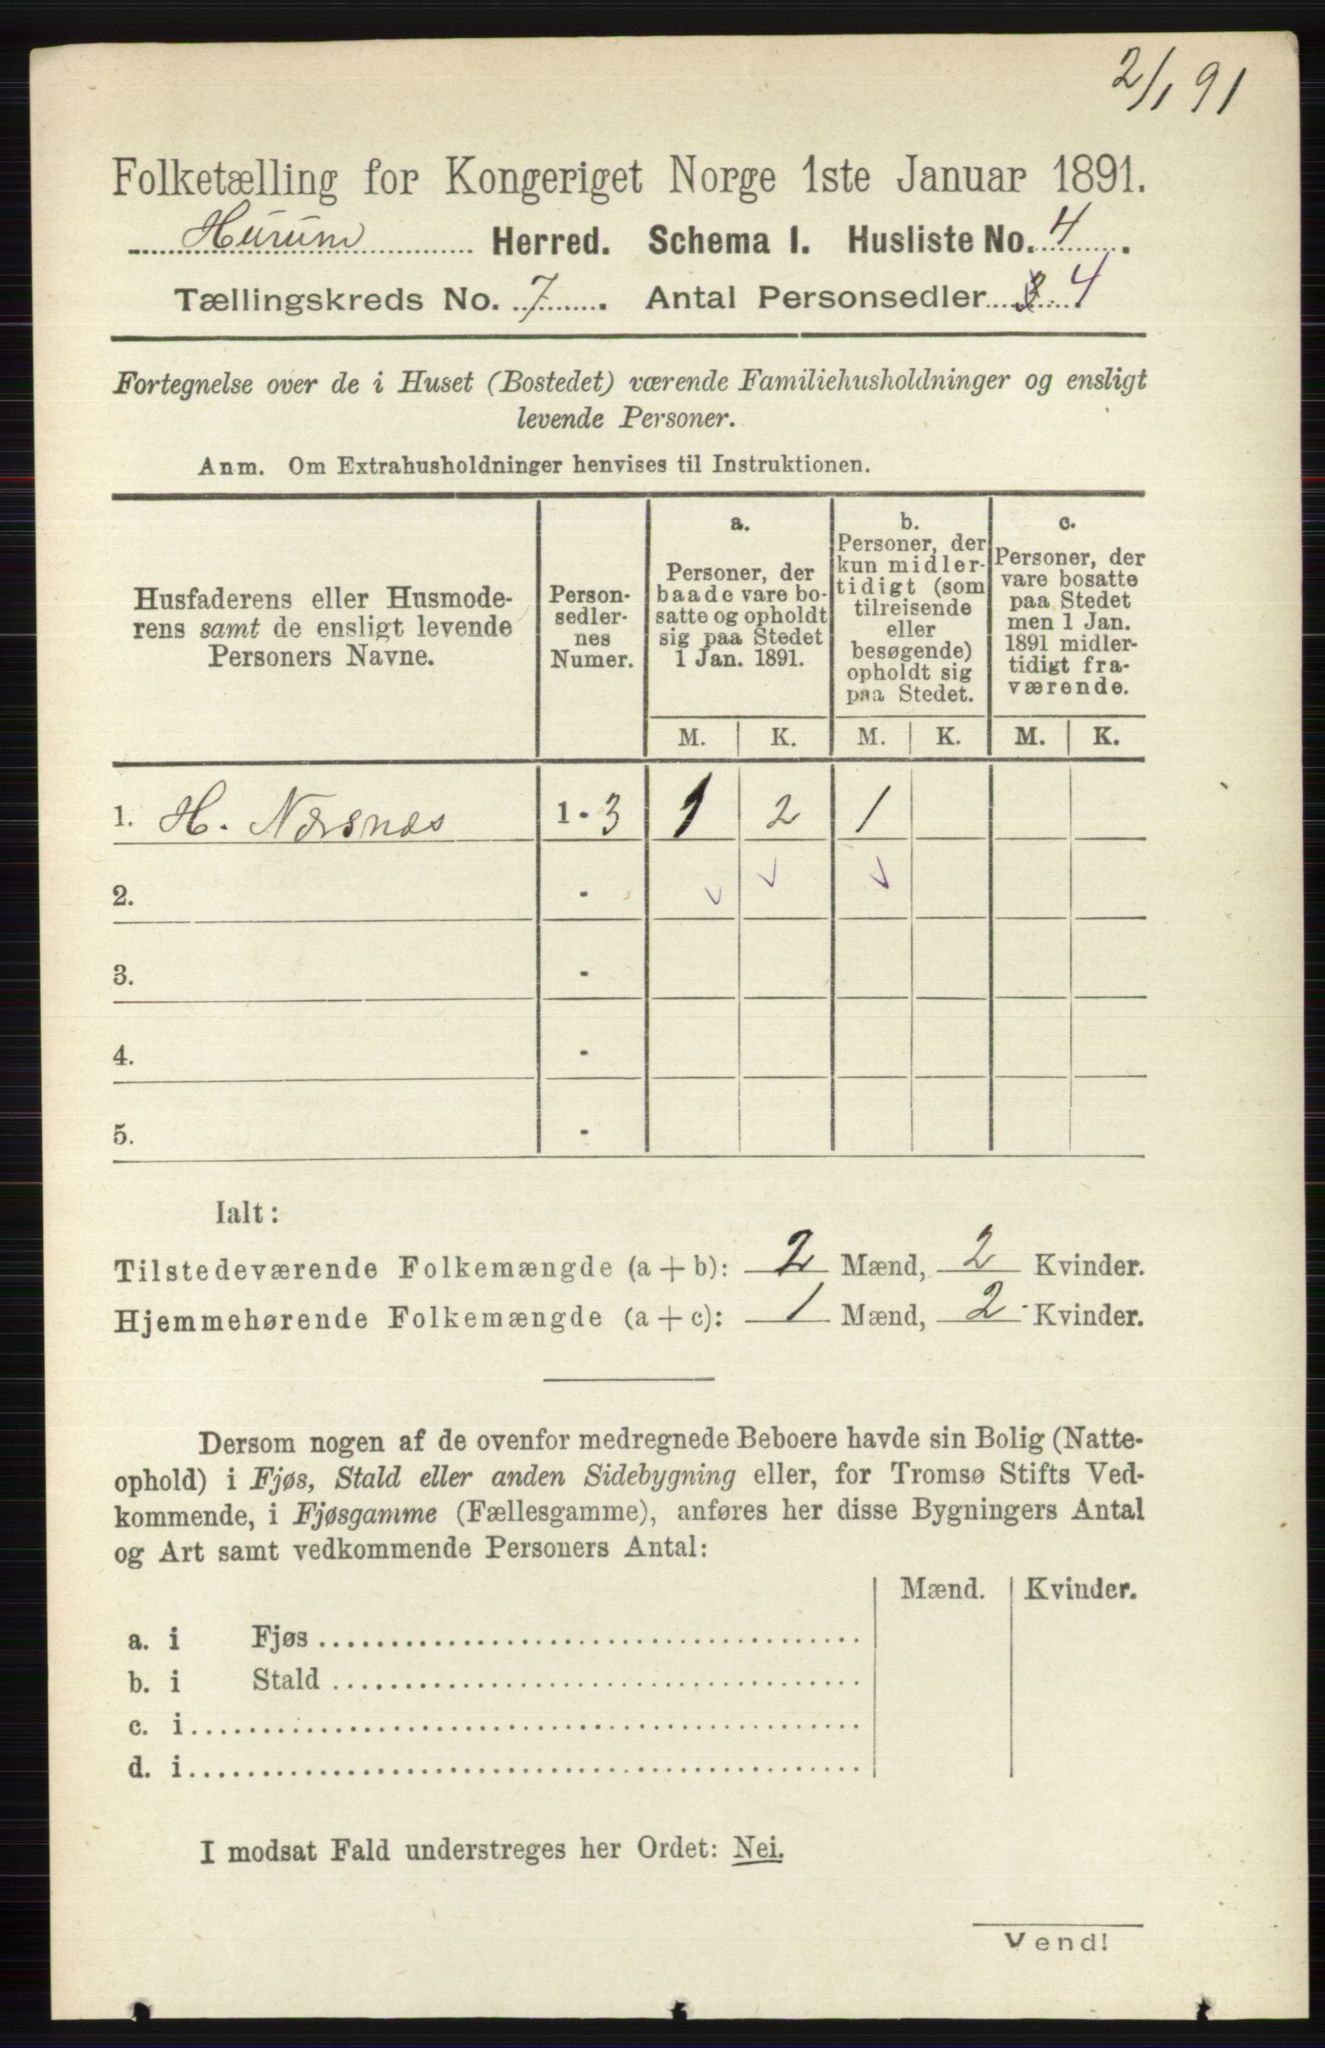 2/1 91
Folketælling for Kongeriget Norge 1ste Januar 1891.
Hurum Herred. Schema I. Husliste No. 4.
Tællingskreds No. 7. Antal Personsedler 3 4
Fortegnelse over de i Huset (Bostedet) værende Familiehusholdninger og ensligt
levende Personer.
Anm. Om Extrahusholdninger henvises til Instruktionen.
Husfaderens eller Husmode-
rens samt de ensligt levende
Personers Navne.
Person-
sedler-
nes
Numer.
a.
Personer, der
baade vare bo-
satte og opholdt
sig paa Stedet
1 Jan. 1891.
b.
Personer, der
kun midler-
tidigt (som
tilreisende
eller
besøgende)
opholdt sig
paa Stedet.
c.
Personer, der
vare bosatte
paa Stedet
men 1 Jan.
1891 midler-
tidigt fra-
værende.
M. K. M. K. M. K.
1. H. Næsnæs 1 - 3 1 2 1
2. -
3. -
4. -
5. -
Ialt:
Tilstedeværende Folkemængde (a + b): 2 Mænd, 2 Kvinder.
Hjemmehørende Folkemængde (a + c): 1 Mænd, 2 Kvinder.
Dersom nogen af de ovenfor medregnede Beboere havde sin Bolig (Natte-
ophold) i Fjøs, Stald eller anden Sidebygning eller, for Tromsø Stifts Ved-
kommende, i Fjøsgamme (Fællesgamme), anføres her disse Bygningers Antal
og Art samt vedkommende Personers Antal:
Mænd. Kvinder.
a. i Fjøs
b. i Stald
c. i
d. i
I modsat Fald understreges her Ordet: Nei.
Vend!